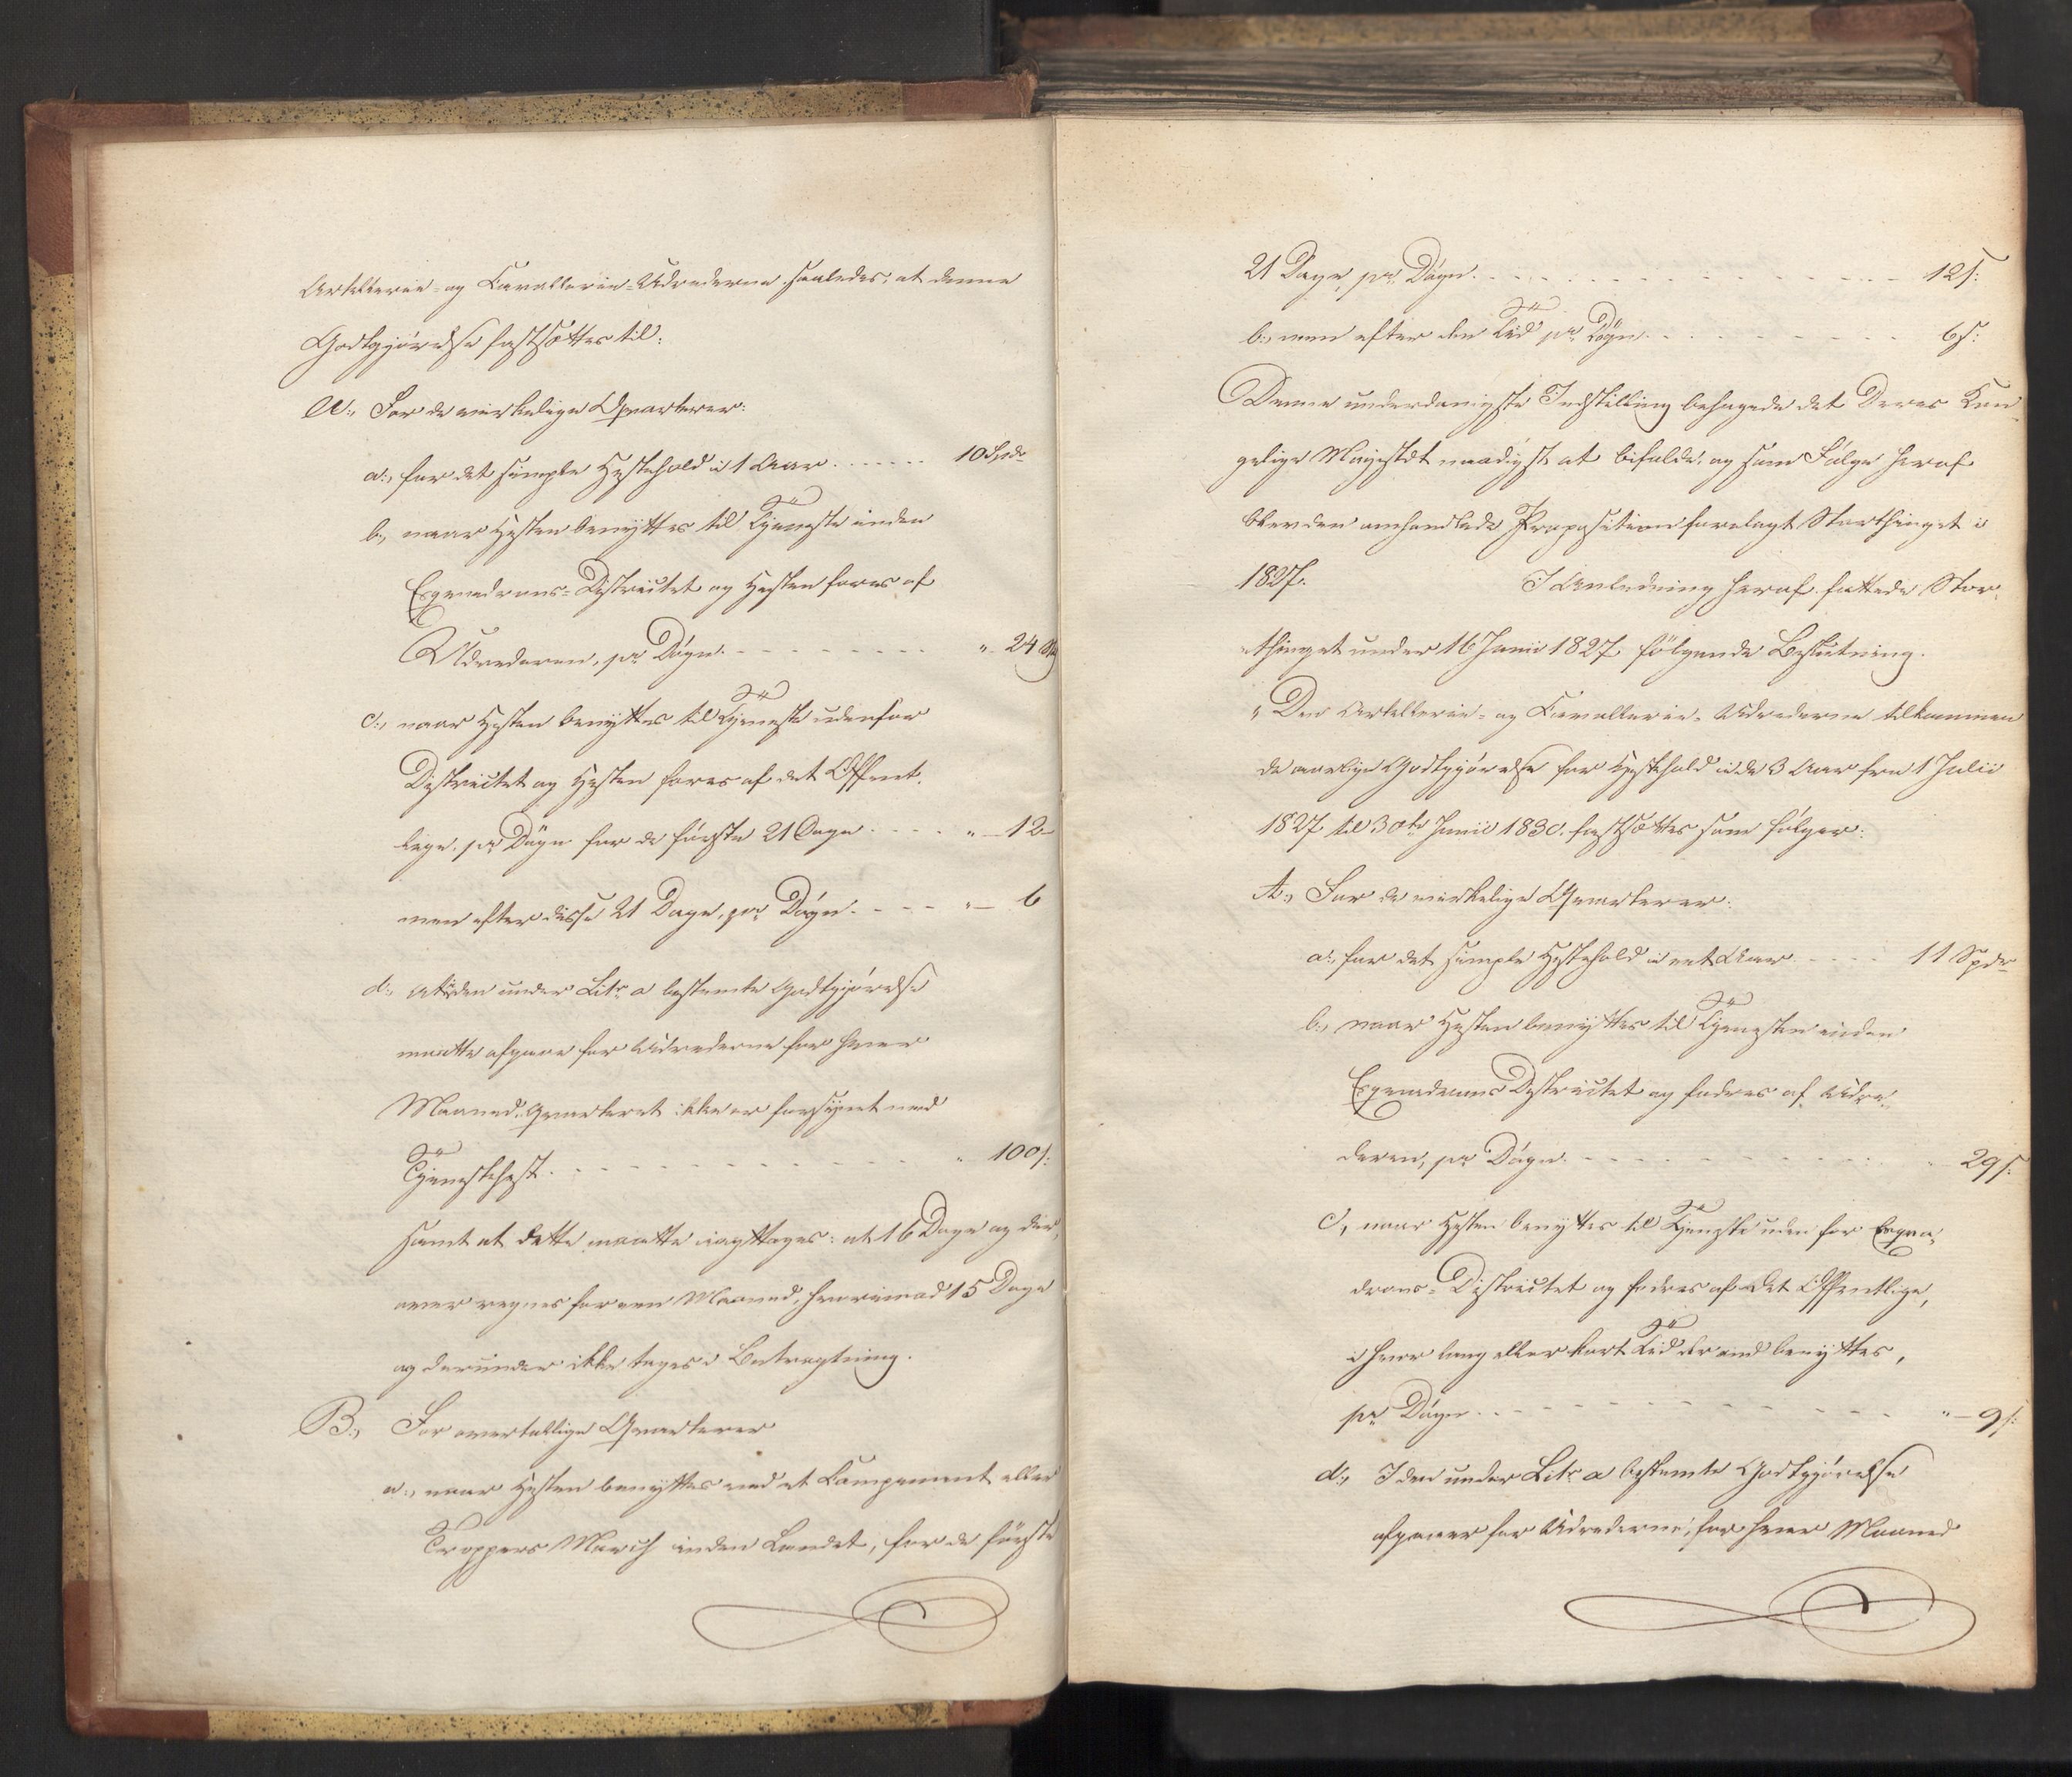 Artellerie- og Cavallerie-Udrederne saaledes, at denne
Godtgjörelse fastsættes til:
A:, For de virkelige Qvarterer:
a:, for det simple Hestehold i 1 Aar ....... 10 Spdr
b:, naar Hesten benyttes til Tjeneste inden
Esqvadrons-Districtet og Hesten fores af
Udrederen, pr Dögn. - - - - - - - - - " 24 s
c:, naar Hesten benyttes til Tjeneste udenfor
Districtet og Hesten fores af det Offent-
lige. pr Dögn for de förste 21 Dage - - - - "—12—
men efter disse 21 Dage, pr Dögn. - - - - "— 6
d:, at i den under Litr a bestemte Godtgjörelse
maatte afgaae for Udrederne for hver
Maaned Qvarteret ikke er forsynet med
Tjenestehest. - - - - - - - - - - - " 100 s:
samt at dette maatte iagttages: at 16 Dage og der-
over regnes for een Maaned, hvorimod 15 Dage
og derunder ikke tages i Betragtning.
B:, For overtallige Qvarterer
a:, naar Hesten benyttes ved et Campement eller
Troppers March inden Landet, for de förste
21 Dage, pr. Dögn. - - - - - - - - - - - - 12 s:
b:, men efter den Tid pr Dögn - - - - - - - - - 6 s:
Denne underdanigste Indstilling behagede det Deres Kon-
gelige Majestæt naadigst at bifalde, og som Fölge heraf
blev den omhandlede Proposition forelagt Storthinget i
1827. I Anledning heraf fattede Stor-
thinget under 16 Junii 1827 fölgende Beslutning.
"Den Artellerie- og Cavallerie-Udrederne tilkommen
de aarlige Godtgjörelse for Hestehold i de 3 Aar fra 1 Julii
1827 til 30te Junii 1830. fastsættes som fölger:
A:, For de virkelige Qvarterer:
a:, for det simple Hestehold i eet Aar - - - - 11 Spdr
b:, naar Hesten benyttes til Tjenesten inden
Esqvadrons Districtet og fodres af Udre-
deren, pr Dögn. - - - - - - - - - - - - 29 s:
c:, naar Hesten benyttes til Tjeneste uden for Esqva-
drons-Districtet og fodres af det Offentlige,
i hvor lang eller kort Tid der end benyttes,
pr Dögn - - - - - - - - - - - - - - "—9 s:
d:, I den under Litr a bestemte Godtgjörelse
afgaaer for Udrederne, for hver Maaned